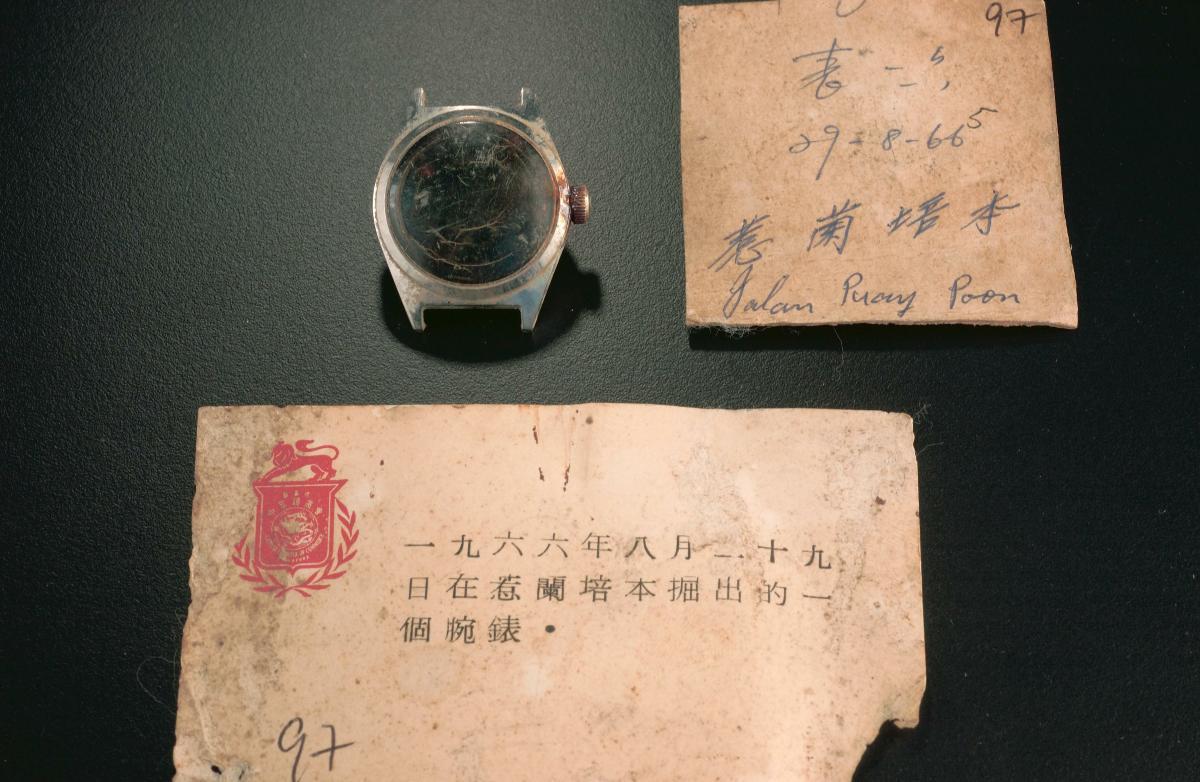 97
表一六
29-8-66
5
惹蘭培本
Jalan Puay Poon
一九六六年八月二十九
日在惹蘭培本掘出的一
個腕錶．
97